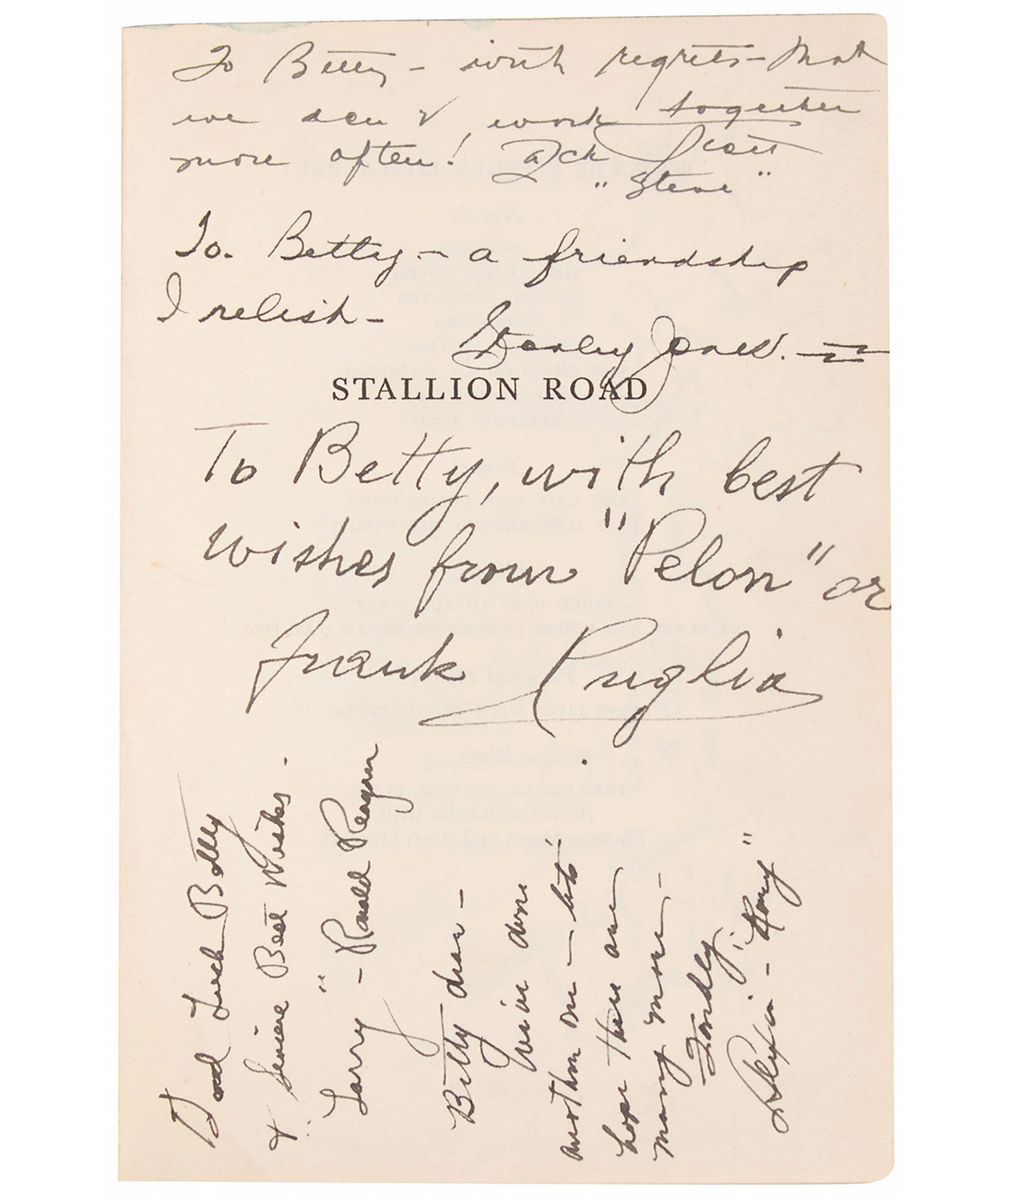 To Betty – with regrets – that
we don't work together
more often! Zack Scott
"Steve"
To. Betty – a friendship
I relish –
Stanley Jones. –
STALLION ROAD
To Betty, with best
wishes from "Pelon" or
Frank Puglia
Good Luck Betty
& Sincere Best Wishes.
"Larry" – Ronald Reagan
Betty dear –
We've done
another one – let's
hope there are
many more –
Fondly,
Alexis – "Rory"